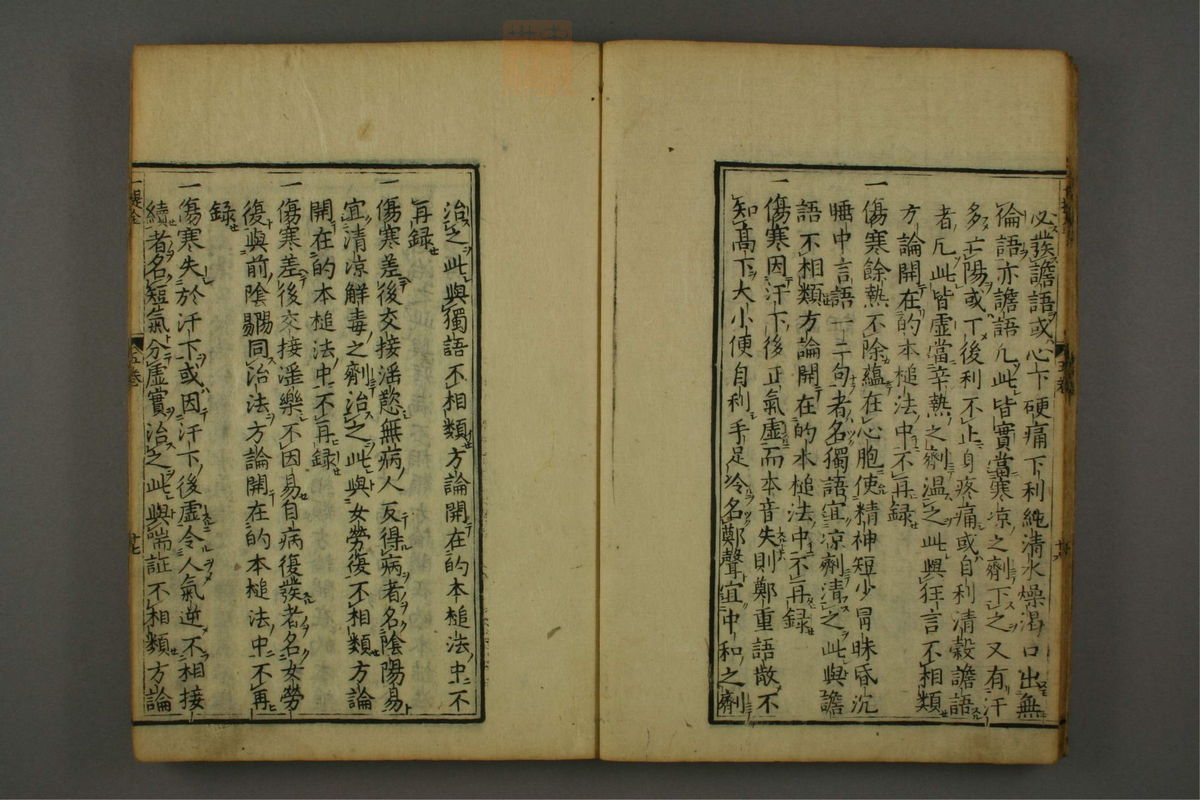 必發譫語或心下硬痛下利純清水燥渴口出無
倫語亦譫語凡此皆實當寒凉之劑下之又有汗
多亡陽或下後利不止身疼痛或自利清穀譫語
者凡此皆虛當辛熱之劑温之此與狂言不相類
方論開在的本槌法中不再録
一傷寒餘熱不除蘊在心胞使精神短少冐昧昏沉
睡中言語一二句者名獨語宜凉劑清之此與譫
語不相類方論開在的本槌法中不再録
一傷寒因汗下後正氣虛而本音失則鄭重語散不
知高下大小便自利手足冷名鄭聲宜中和之劑
治之此與獨語不相類方論開在的本槌法中不
再録
一傷寒差後交接淫慾無病人反得病者名陰陽易
宜清凉解毒之劑治之此與女勞復不相類方論
開在的本槌法中不再録
一傷寒差後交接淫樂不因易自病復發者名女勞
復與前陰陽同治法方論開在的本槌法中不再
録
一傷寒失於汗下或因汗下後虛令人氣逆不相接
續者名短氣分虛實治之此與喘証不相類方論
五卷
廿七